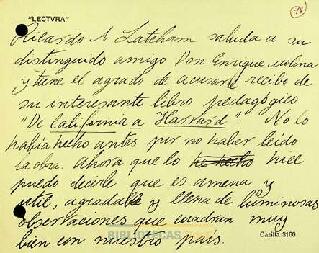 "LECTVRA"
Ricardo A Latcham saluda a su
distinguido amigo Don Enrique Molina
y tiene el agrado de acusar recibo de
su interesante libro pedagógico
"De California a Harvard" No lo
había hecho antes por no haber leído
la obra. Ahora que lo he hecho hice
puedo decirle que es amena y
util, agradable y llena de luminosas
observaciones que cuadran muy
bien con nuestro país.
Casilla 3100
BIBLIOTECA